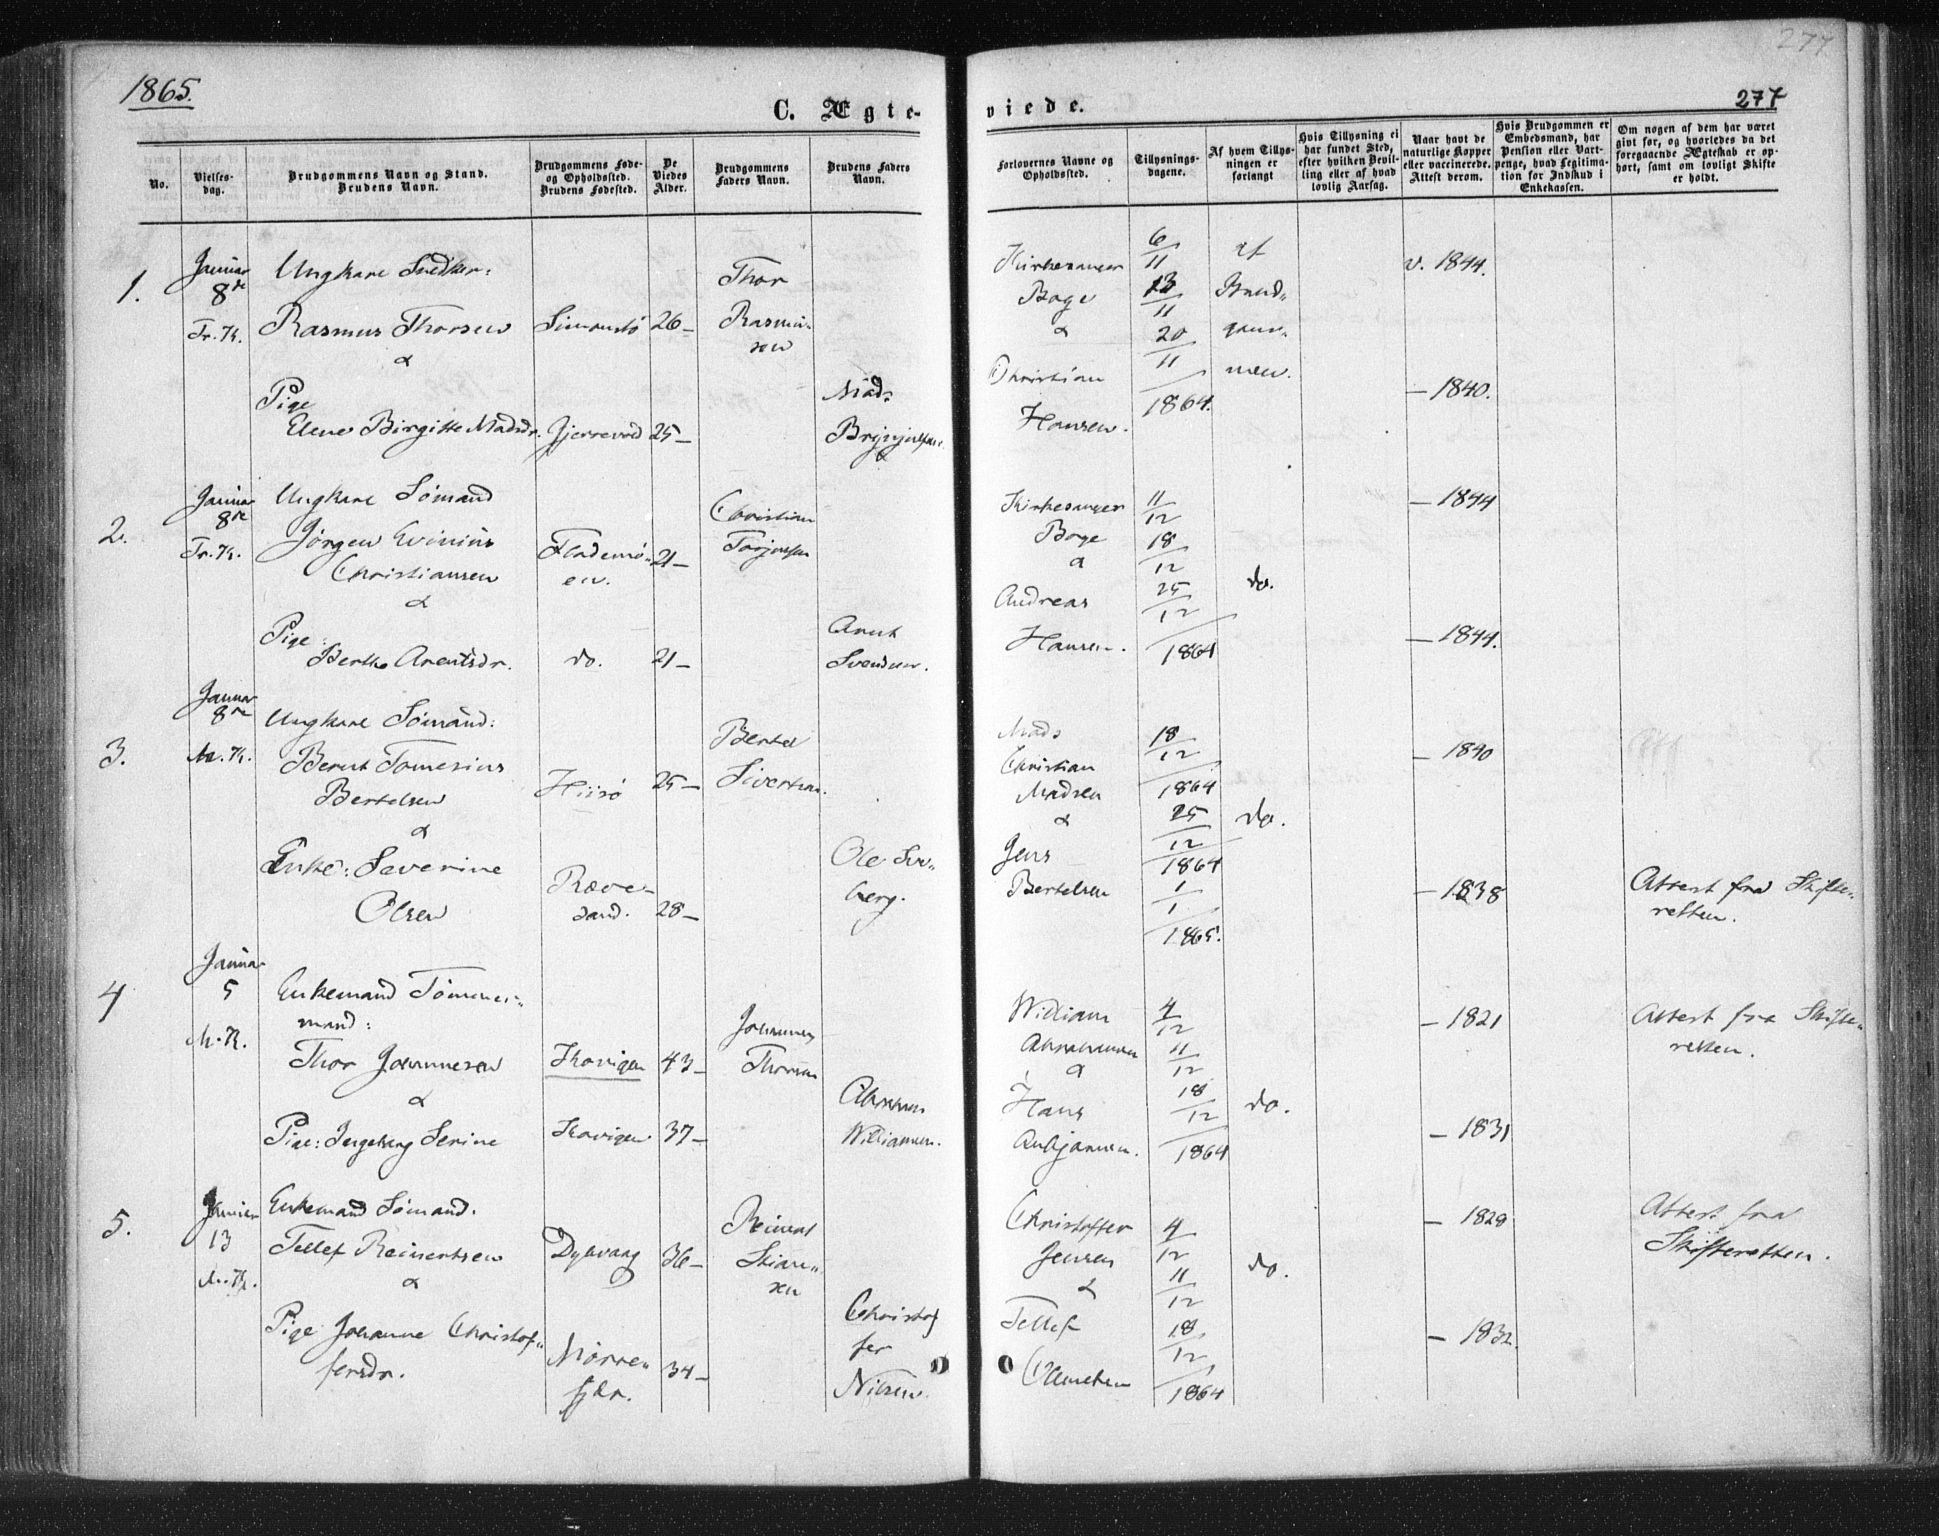 1865.
277
C. Ægte-
viede.
277
No.
Vielses-
dag.
Brudgommens Navn og Stand.
Brudens Navn.
Brudgommens Føde-
og Opholdssted.
Brudens Fødested.
De
Viedes
Alder.
Brudgommens
Faders Navn.
Brudens Faders
Navn.
Forlovernes Navne og
Opholdssted.
Tillysnings-
dagene.
Af hvem Tillys-
ningen er
forlangt
Hvis Tillysning ei
har fundet Sted,
efter hvilken Bevil-
ling eller af hvad
lovlig Aarsag.
Naar havt de
naturlige Kopper
eller vaccinerede.
Attest derom.
Hvis Brudgommen er
Embedsmand, har
Pension eller Vart-
penge, hvad Legitima-
tion for Indskud i
Enkekassen.
Om nogen af dem har været
gift før, og hvorledes da det
foregaaende Ægteskab er op-
hørt, samt om lovligt Skifte
er holdt.
1.
Januar
8de
Tr. K.
Ungkarl Snedker:
Rasmus Thorsen
&
Pige
Elene Birgitte Madsdr.
26-
Gjerrevod
25-
Thor
Rasmu-
sen
Mads
Kirkesanger
Boge
&
Christian
Hansen.
6/11
13/11
20/11
1864.
af
Brud-
gom-
men.
v. 1844.
- 1840.
2.
Januar
8de
Tr. K.
Ungkarl Sømand
Jørgen
Christiansen
&
Pige:
Berthe Arentsdr.
21-
do.
21-
Christian
Arent
Svendsen.
Kirkesanger
Boge
&
Andreas
Hansen.
11/12
18/12
25/12
1864
do.
- 1844
- 1844.
3.
Januar
8de
M. K.
Ungkarl Sømand:
Bernt Tomesius
Bertelsen
&
Enke: Severine
Olsen
Hiisø
25-
Ræve-
sand.
28-
Bertel
Sivertsen.
Ole
berg.
Mads
Christian
Madsen
&
Jens
Bertelsen
18/12
1864
25/12
1864
1/1
1865.
do.
- 1840
- 1838
Attest fra Skifte-
retten.
4
Januar
5
M. K.
Enkemand Tømmer-
mand:
Thor Johannesen
&
Pige: Ingeborg Serine
43-
37-
Johannes
Thorsen
Abraham
Williamsen.
William
Abrahamsen
&
Hans
4/12
11/12
18/12
1864
do.
- 1821
- 1831
Attest fra Skifte-
retten.
5.
Januar
13
M. K.
Enkemand Sømand.
Tellef Reinertsen
&
Pige Johanne Christof-
fersdr.
Dybvaag
36-
34-
Reinert
sen
Christof
fer
Nilsen.
Christoffer
Jensen
&
Tellef
4/12
11/12
18/12
1864
do.
- 1829
- 1832.
Attest fra
Skifteretten.